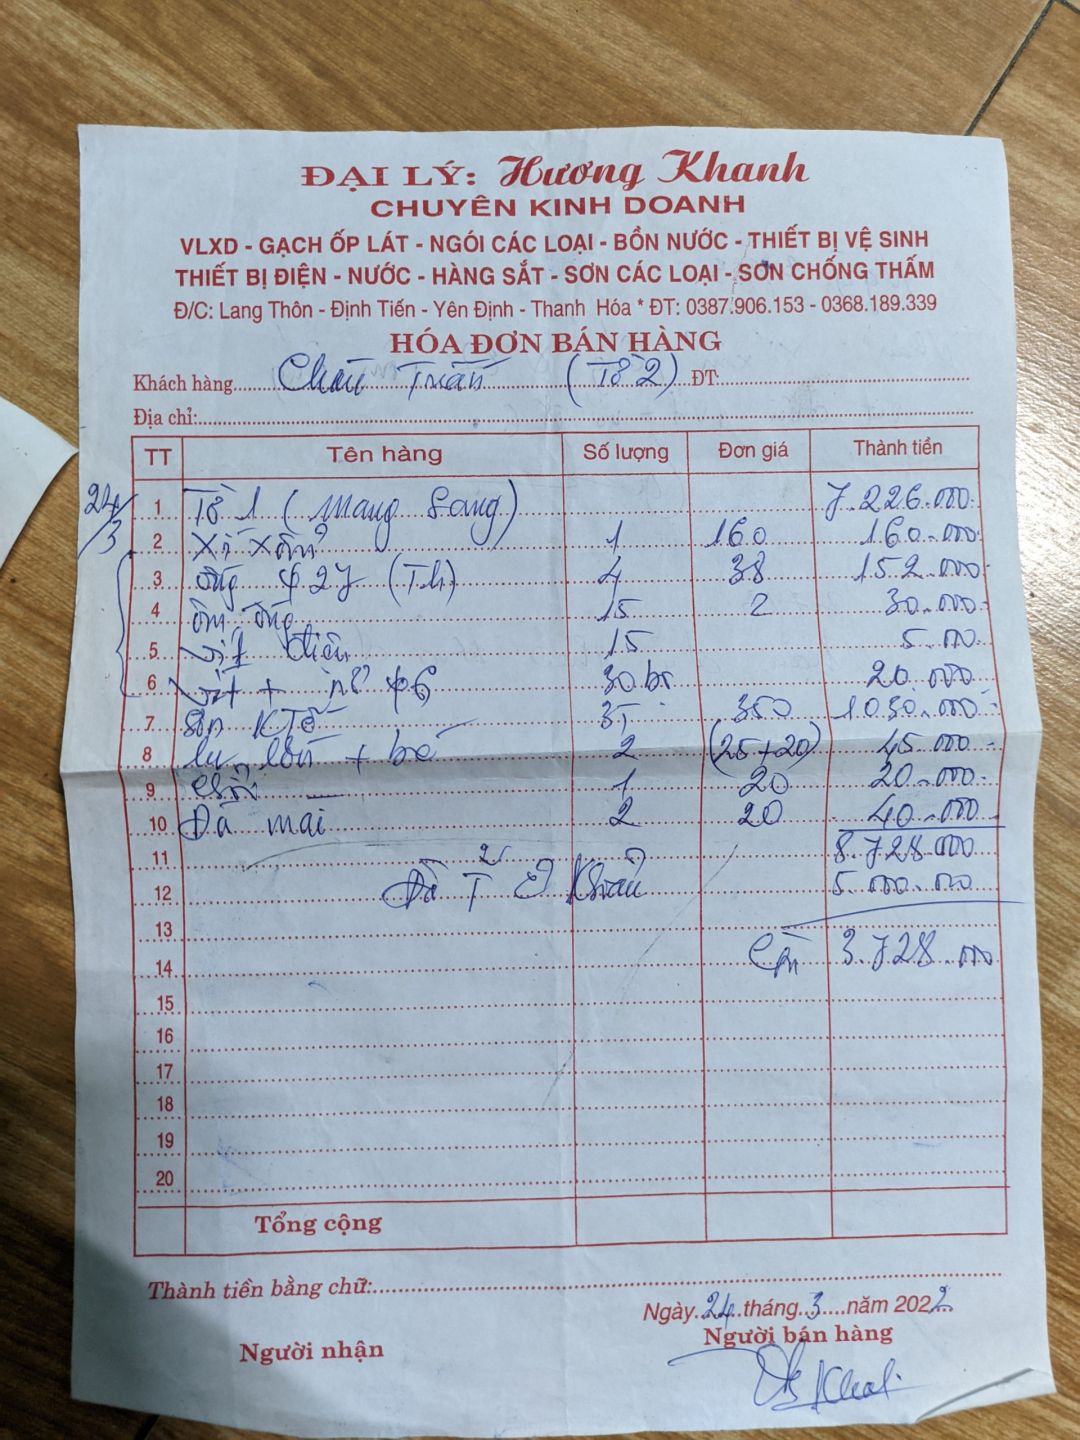 ĐẠI LÝ: Hương Khanh
CHUYÊN KINH DOANH
VLXD - GẠCH ỐP LÁT - NGÓI CÁC LOẠI - BỒN NƯỚC - THIẾT BỊ VỆ SINH
THIẾT BỊ ĐIỆN - NƯỚC - HÀNG SẮT - SƠN CÁC LOẠI - SƠN CHỐNG THẤM
Đ/C: Lang Thôn - Định Tiến - Yên Định - Thanh Hóa * ĐT: 0387.906.153 - 0368.189.339
HÓA ĐƠN BÁN HÀNG
Khách hàng Tuấn (Tờ 2) ĐT
Địa chỉ:
TT Tên hàng Số lượng Đơn giá Thành tiền
24/3 1 Tờ 1 (Mang Sang) 7.226.000
2 Xí xổm 1 160 160.000
3 ống φ27 (TH) 4 38 152.000
4 ôm ống 15 2 30.000
5 vít 15 5.000
6 vít + nở φ6 30 bộ 20.000
7 Sơn 3T 350 1030.000
8 lu lăn + bé 2 (25+20) 45.000
9 chổi 1 20 20.000
10 Đá mài 2 20 40.000
11 8.728.000
12 Đã T 5.000.000
13
14 Còn 3.728.000
15
16
17
18
19
20
Tổng cộng
Thành tiền bằng chữ:
Ngày 24 tháng 3 năm 2022
Người nhận Người bán hàng